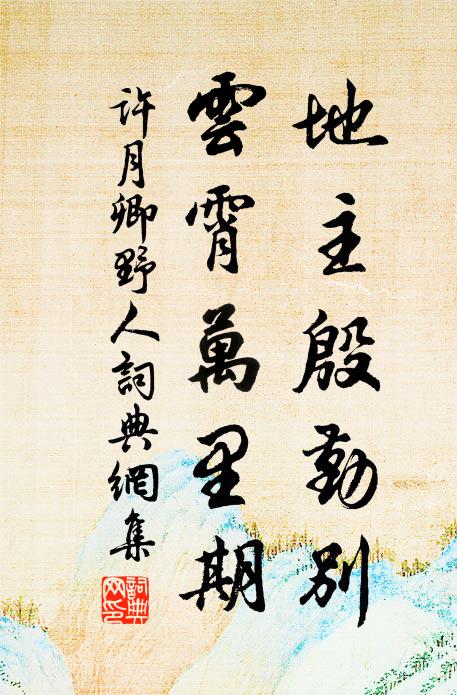 地主殷勤别
雲霄萬里期
許月卿野人詞典網集
詞典網印